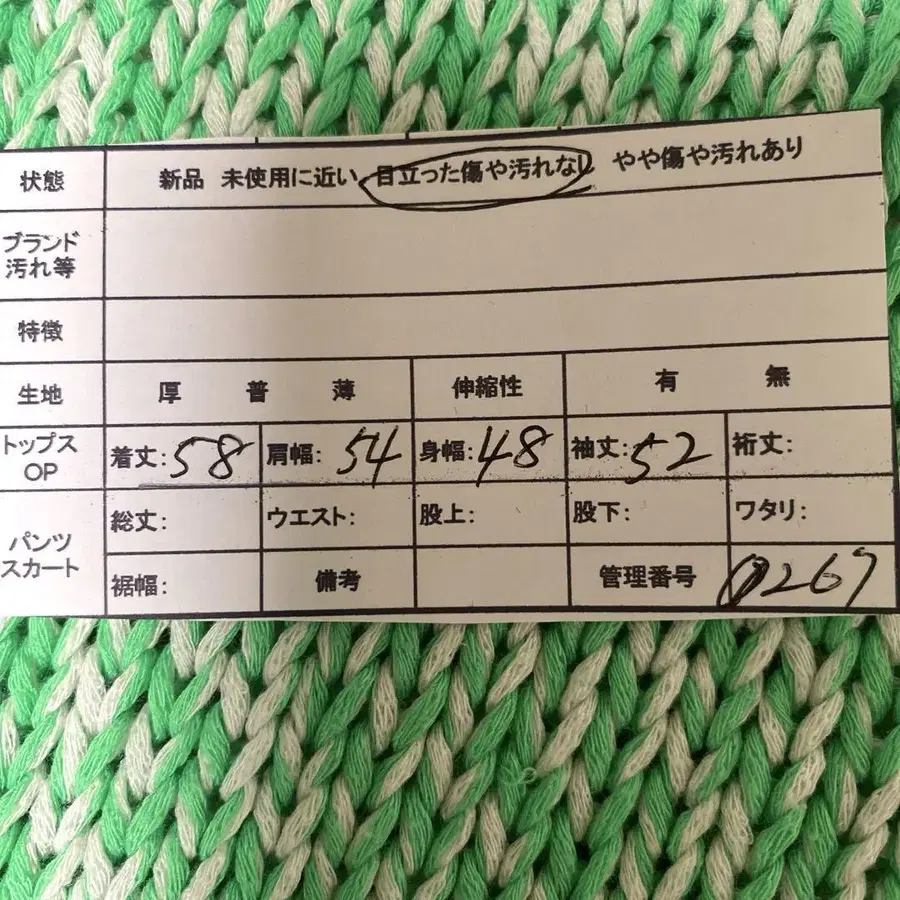 状態 新品 未使用に近い 目立った傷や汚れなし やや傷や汚れあり
ブランド
汚れ等
特徴
生地 厚 普 薄 伸縮性 有 無
トップス
OP
着丈:58 肩幅:54 身幅:48 袖丈:52 裄丈:
パンツ
スカート
総丈: ウエスト: 股上: 股下: ワタリ:
裾幅: 備考 管理番号 267